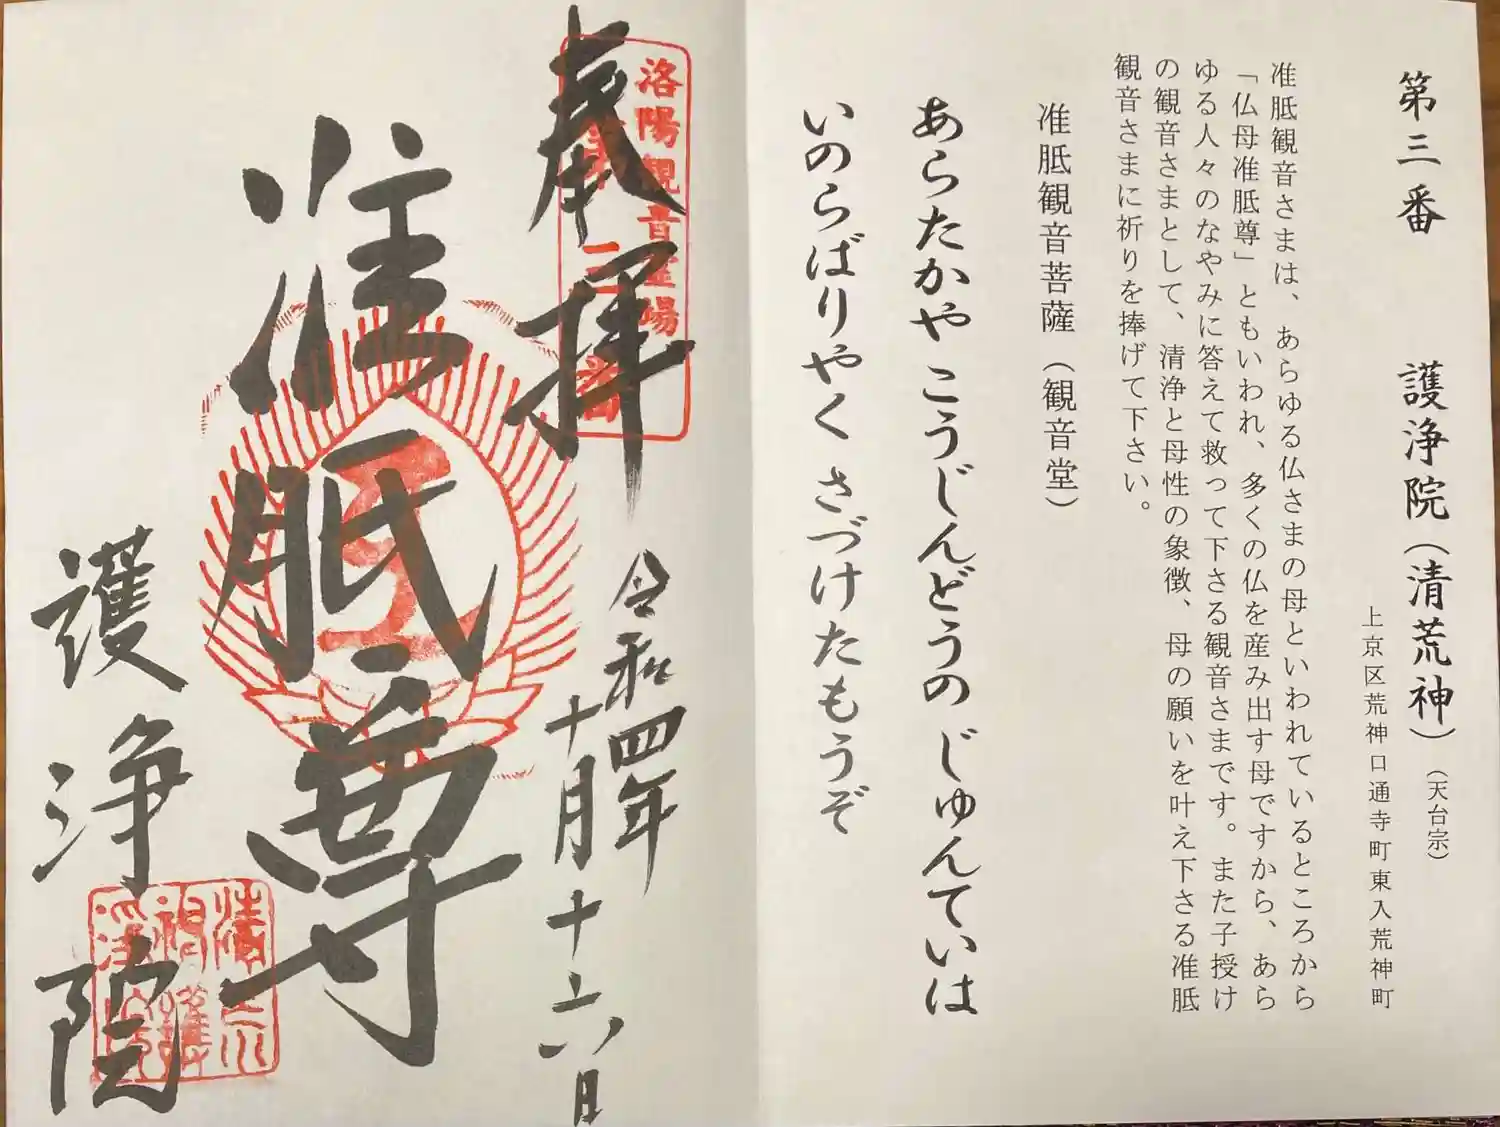 第三番 護浄院（清荒神）（天台宗）
上京区荒神口通寺町東入荒神町
准胝観音さまは、あらゆる仏さまの母といわれているところから
「仏母准胝尊」ともいわれ、多くの仏を産み出す母ですから、あら
ゆる人々のなやみに答えて救って下さる観音さまです。また子授け
の観音さまとして、清浄と母性の象徴、母の願いを叶え下さる准胝
観音さまに祈りを捧げて下さい。
准胝観音菩薩（観音堂）
あらたかや こうじんどうの じゅんていは
いのらばりやく さづけたもうぞ
奉拝
洛陽観音霊場
第三番
令和四年
十月十六日
准胝尊
護浄院